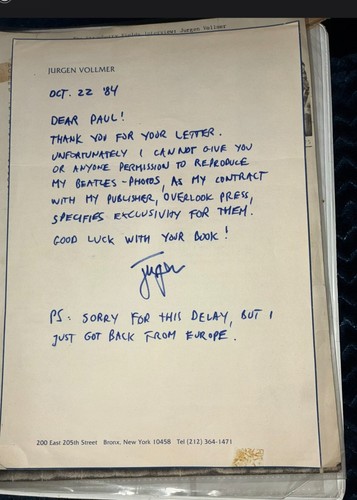 Jurgen Vollmer
JURGEN VOLLMER
OCT. 22 '84
DEAR PAUL!
THANK YOU FOR YOUR LETTER.
UNFORTUNATELY I CANNOT GIVE YOU
OR ANYONE PERMISSION TO REPRODUCE
MY BEATLES-PHOTOS, AS MY CONTRACT
WITH MY PUBLISHER, OVERLOOK PRESS,
SPECIFIES EXCLUSIVITY FOR THEM.
GOOD LUCK WITH YOUR BOOK!
Jurgen
PS: SORRY FOR THIS DELAY, BUT I
JUST GOT BACK FROM EUROPE.
200 East 205th Street Bronx, New York 10458 Tel (212) 364-1471